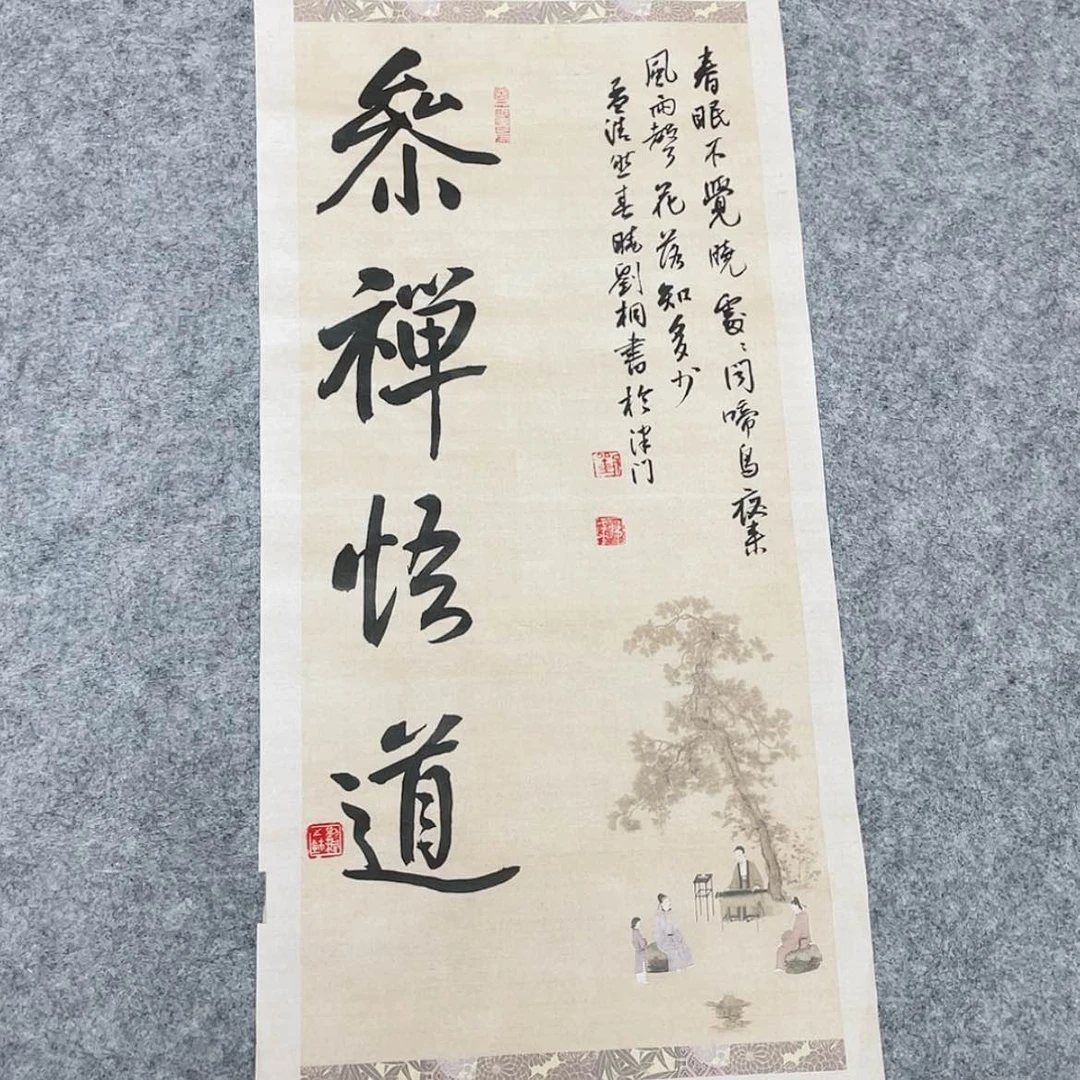 春眠不覺曉處〻闻啼鳥夜來
風雨聲花落知多少
孟浩然春曉劉桐書於津门
叅禪悟道